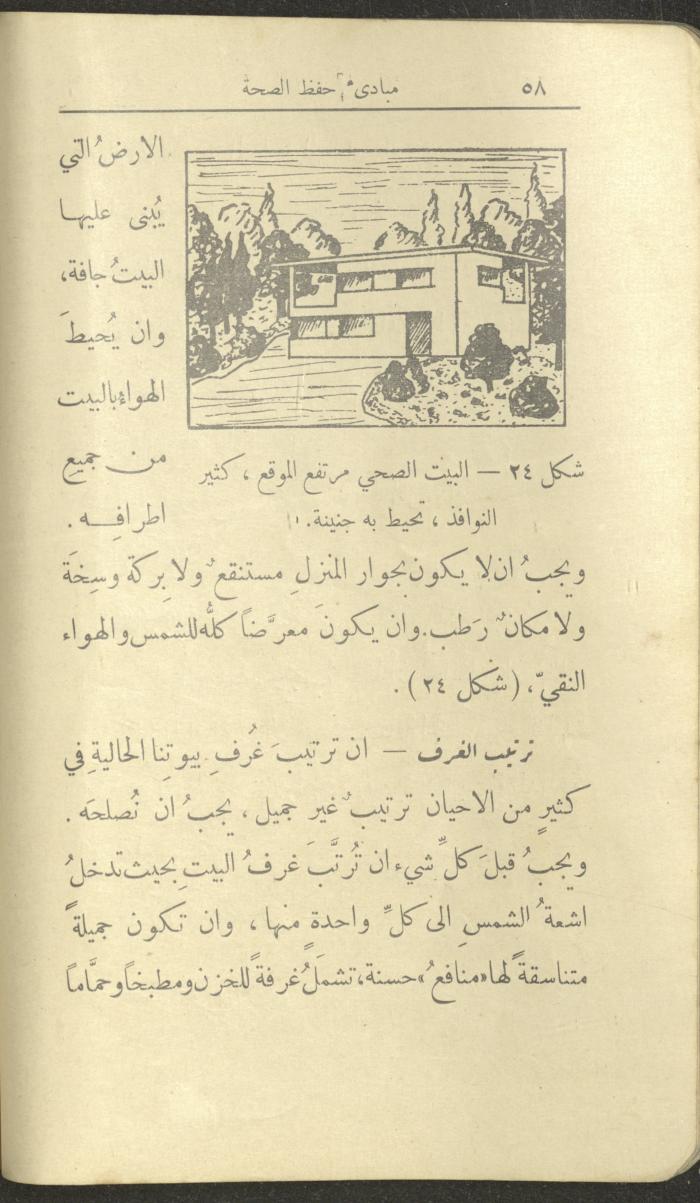 ٥٨
مبادىء حفظ الصحة
الارضُ التي
يُبنى عليها
البيتُ جافة،
وان يُحيطَ
الهواءُ بالبيت
من جميع
اطرافه .
شكل ٢٤ — البيت الصحي مرتفع الموقع ، كثير
النوافذ ، تحيط به جنينة .
ويجبُ ان لا يكون بجوار المنزلِ مستنقعٌ ولا بِركة وسِخَة
ولا مكانٌ رَطب . وان يكونَ معرَّضاً كلُّه للشمس والهواء
النقيّ ، ( شكل ٢٤ ) .
ترتيب الغرف — ان ترتيبَ غُرفِ بيوتِنا الحاليةِ في
كثيرٍ من الاحيان ترتيبٌ غير جميل ، يجبُ ان نُصلحَه .
ويجبُ قبلَ كلِّ شيء ان تُرتَّبَ غرفُ البيتِ بحيث تدخلُ
اشعةُ الشمسِ الى كلِّ واحدةٍ منها ، وان تكون جميلةً
متناسقةً لها «منافعُ» حسنة ، تشملُ غرفةً للخزن ومطبخاً وحمَّاماً